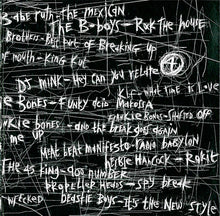 Babe ruth - the mexican
The B-boys - Rock the house
Brothers - Best part of Breaking up
of mouth - King Kut
DJ mink - Hey can you relate
4
Klf - what time is love
e Bones - Funky acid Makossa
Frankie Bones - Shutted off
nkie Bones - and the break goes again
me up
Meat Beat manifesto - radio babylon
Herbie Hancock - Rokit
The 45 King - 900 number
Propeller Heads - spy break
Wrecked
Beastie Boys - it's the New style